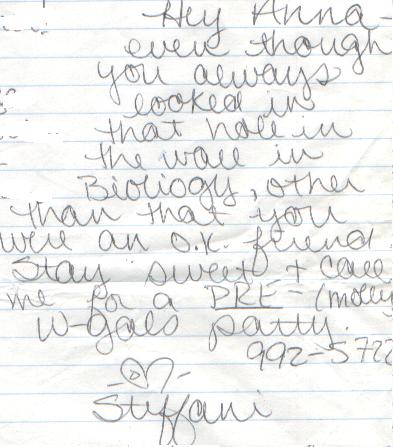 Hey Anna-
even though
you always
looked in
that hole in
the wall in
Biology, other
than that you
were an o.k. friend
Stay sweet + call
me for a PRE- (molly
W-gals party.
992-5722
Steffani